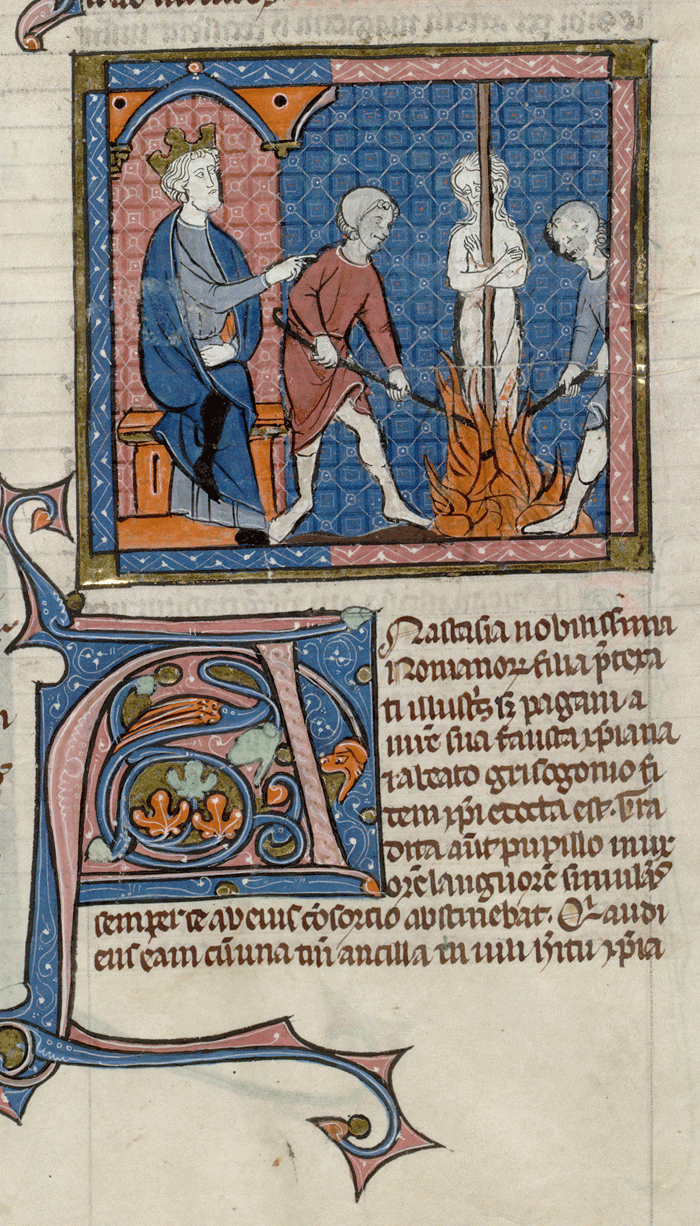 Anastasia nobilissima
Romanorꝝ filia p̄texta
ti illustͥs sꝫ pagani a
mr̄e sua fausta xp̄iana
⁊ a beato grisogonio fi
dem xp̄i edocta est. Tra
dita aūt pupillo in ux
orē languorē simulās
semper se ab eius cōsortio abstinebat. Q̄ audi
ens eam cū una tm̄ ancilla in uili h̓itu xp̄ia